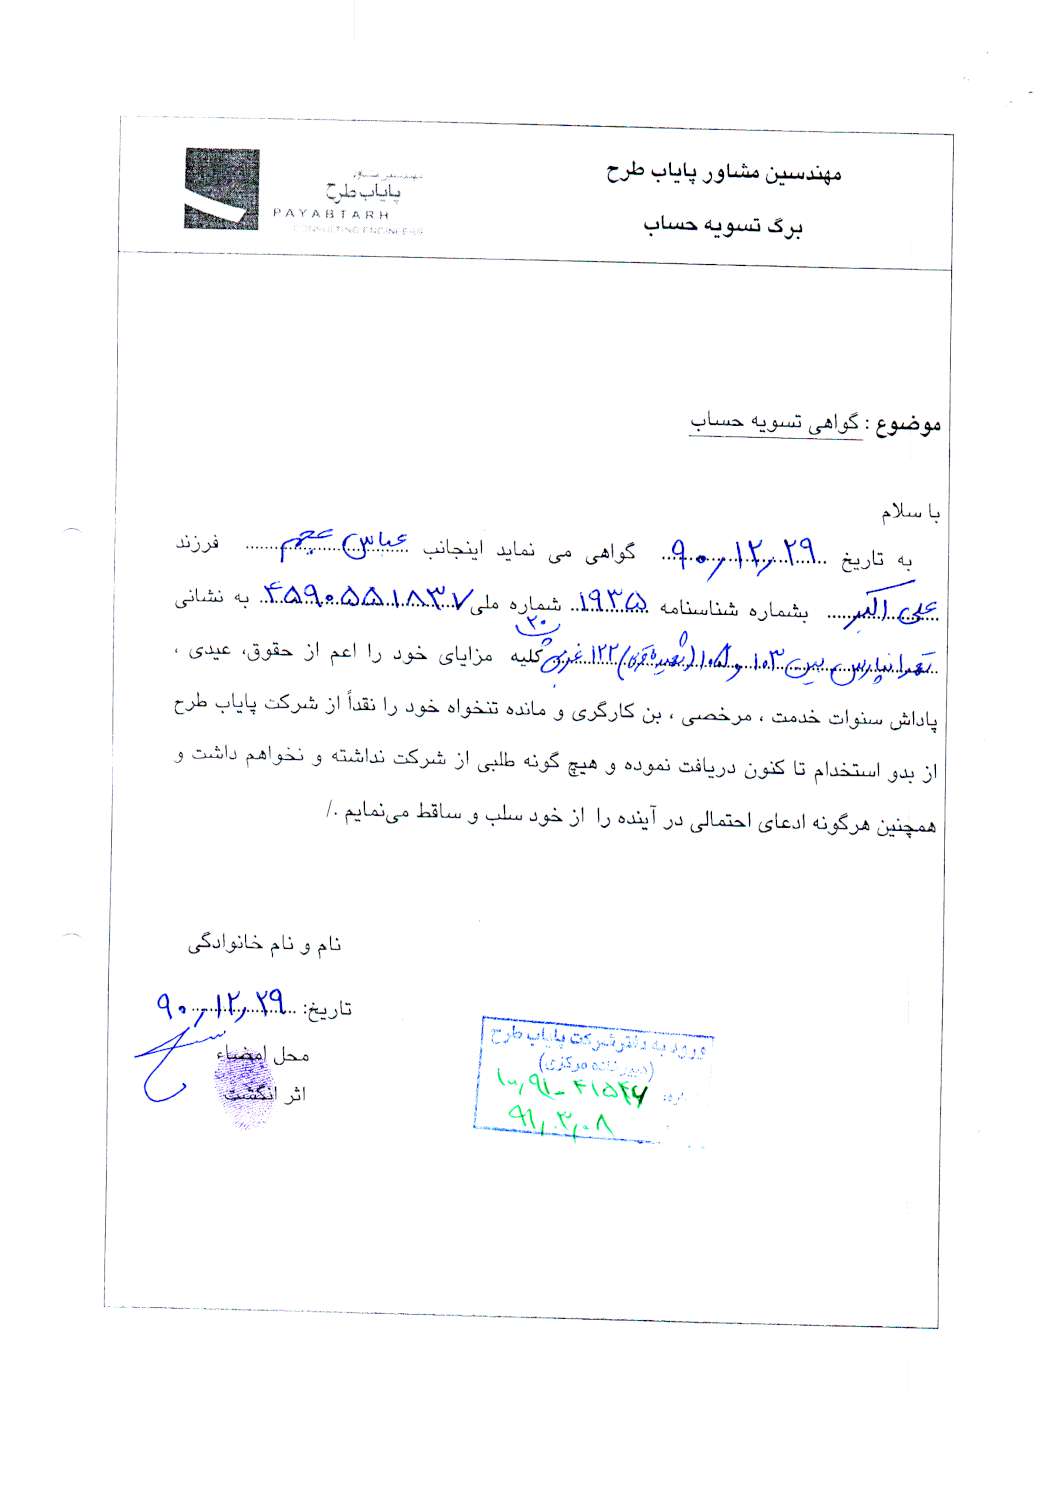 مهندسین مشاور پایاب طرح
برگ تسویه حساب
پایاب طرح
PAYABTARH
CONSULTING ENGINEERS
موضوع : گواهی تسویه حساب
با سلام
به تاریخ ۹۰,۱۲,۲۹ گواهی می نماید اینجانب عباس عجم فرزند
علی اکبر بشماره شناسنامه ۱۹۳۵ شماره ملی ۴۵۹۰۵۵۱۸۳۷ به نشانی
تهرانپارس بین ۱۰۳ و ۱۰۵ ( ) ۱۲۲ غربی ۲۰ کلیه مزایای خود را اعم از حقوق، عیدی ،
پاداش سنوات خدمت ، مرخصی ، بن کارگری و مانده تنخواه خود را نقداً از شرکت پایاب طرح
از بدو استخدام تا کنون دریافت نموده و هیچ گونه طلبی از شرکت نداشته و نخواهم داشت و
همچنین هرگونه ادعای احتمالی در آینده را از خود سلب و ساقط می‌نمایم ./
نام و نام خانوادگی
تاریخ: ۹۰,۱۲,۲۹
محل امضاء
اثر انگشت
ورود به دفتر شرکت پایاب طرح
(دبیرخانه مرکزی)
۹۱,۳,۰۸